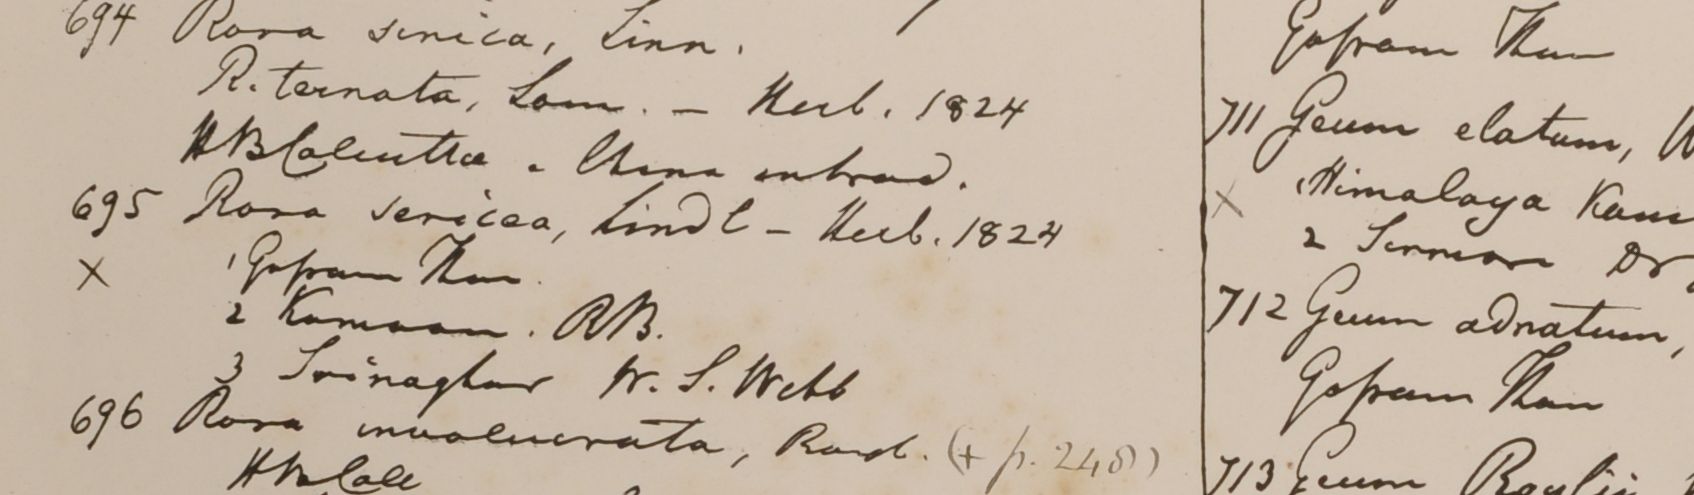 694 Rosa sinica, Linn.
R. ternata, Lam. — Herb. 1824
HBCalcutta. China introd.
695 Rosa sericea, Lindl — Herb. 1824
× 1 Gosram Than
2 Kamaon. RB.
3 Srinaghur W. S. Webb
696 Rosa involucrata, Roxb. (+ p. 248)
HBCalc
Gosram Than
711 Geum elatum, W
× 1 Himalaya Kam
2 Sirmore Dr
712 Geum adnatum,
Gosram Than
713 Geum Roylii